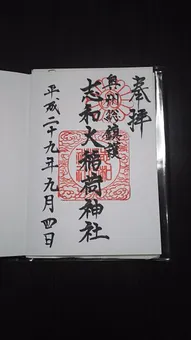 奉拝
奥州総鎮護
志和稲荷神社
平成二十九年九月四日